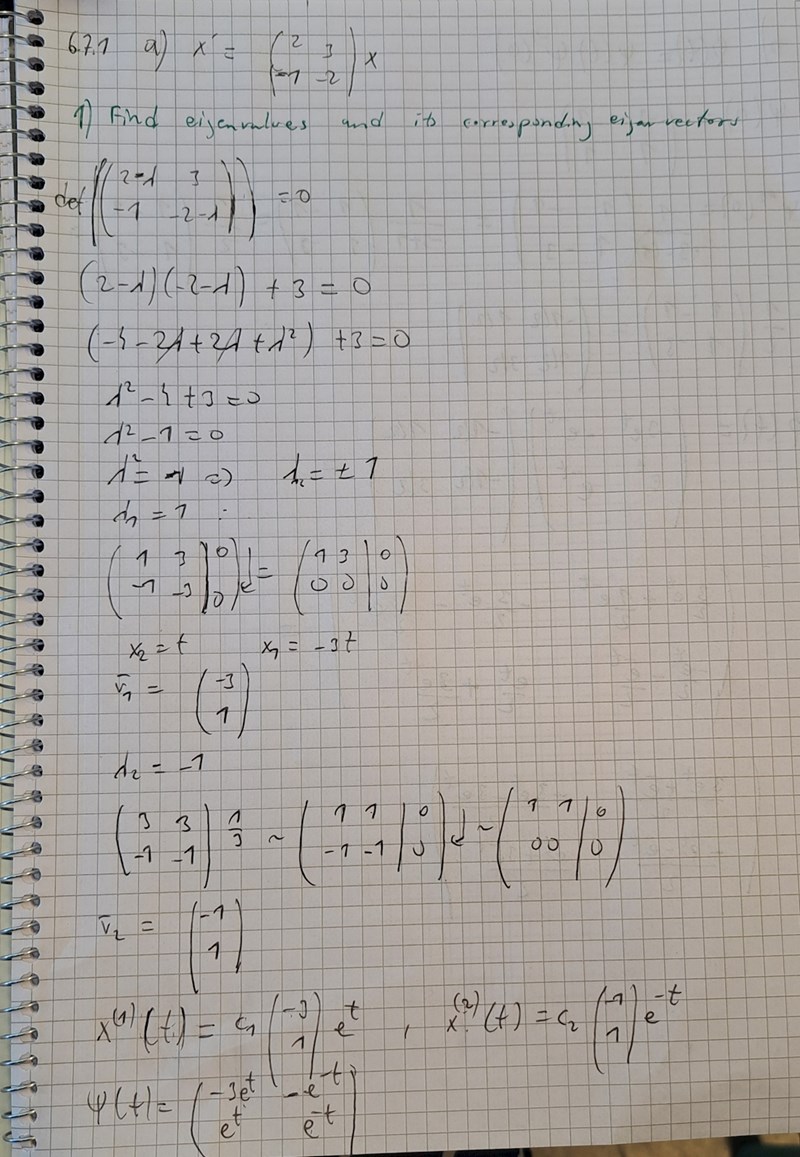 6.7.1 a) x' = (2 3; -1 -2) x
1) Find eigenvalues and its corresponding eigenvectors
det((2-λ 3; -1 -2-λ)) = 0
(2-λ)(-2-λ) + 3 = 0
(-4 - 2λ + 2λ + λ²) + 3 = 0
λ² - 4 + 3 = 0
λ² - 1 = 0
λ² = 1 => λ₁,₂ = ± 1
λ₁ = 1 :
(1 3 | 0; -1 -3 | 0) = (1 3 | 0; 0 0 | 0)
x₂ = t x₁ = -3t
v̄₁ = (-3; 1)
λ₂ = -1
(3 3; -1 -1) 1/3 ~ (1 1 | 0; -1 -1 | 0) ~ (1 1 | 0; 0 0 | 0)
v̄₂ = (-1; 1)
x⁽¹⁾(t) = c₁ (-3; 1) e^t , x⁽²⁾(t) = c₂ (-1; 1) e^-t
Ψ(t) = (-3e^t -e^-t; e^t e^-t)